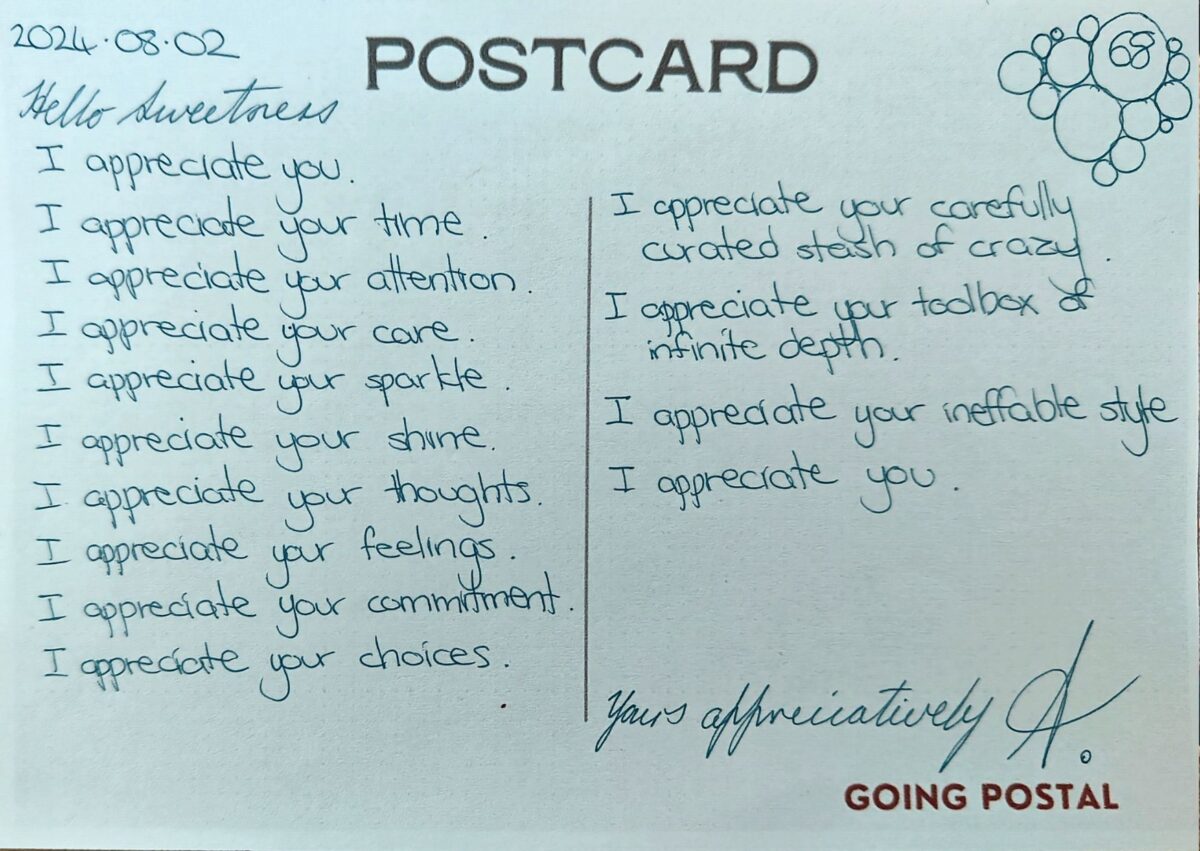 2024.08.02
POSTCARD
68
Hello Sweetness
I appreciate you.
I appreciate your time.
I appreciate your attention.
I appreciate your care.
I appreciate your sparkle.
I appreciate your shine.
I appreciate your thoughts.
I appreciate your feelings.
I appreciate your commitment.
I appreciate your choices.
I appreciate your carefully
curated stash of crazy.
I appreciate your toolbox of
infinite depth.
I appreciate your ineffable style
I appreciate you.
Yours appreciatively A.
GOING POSTAL